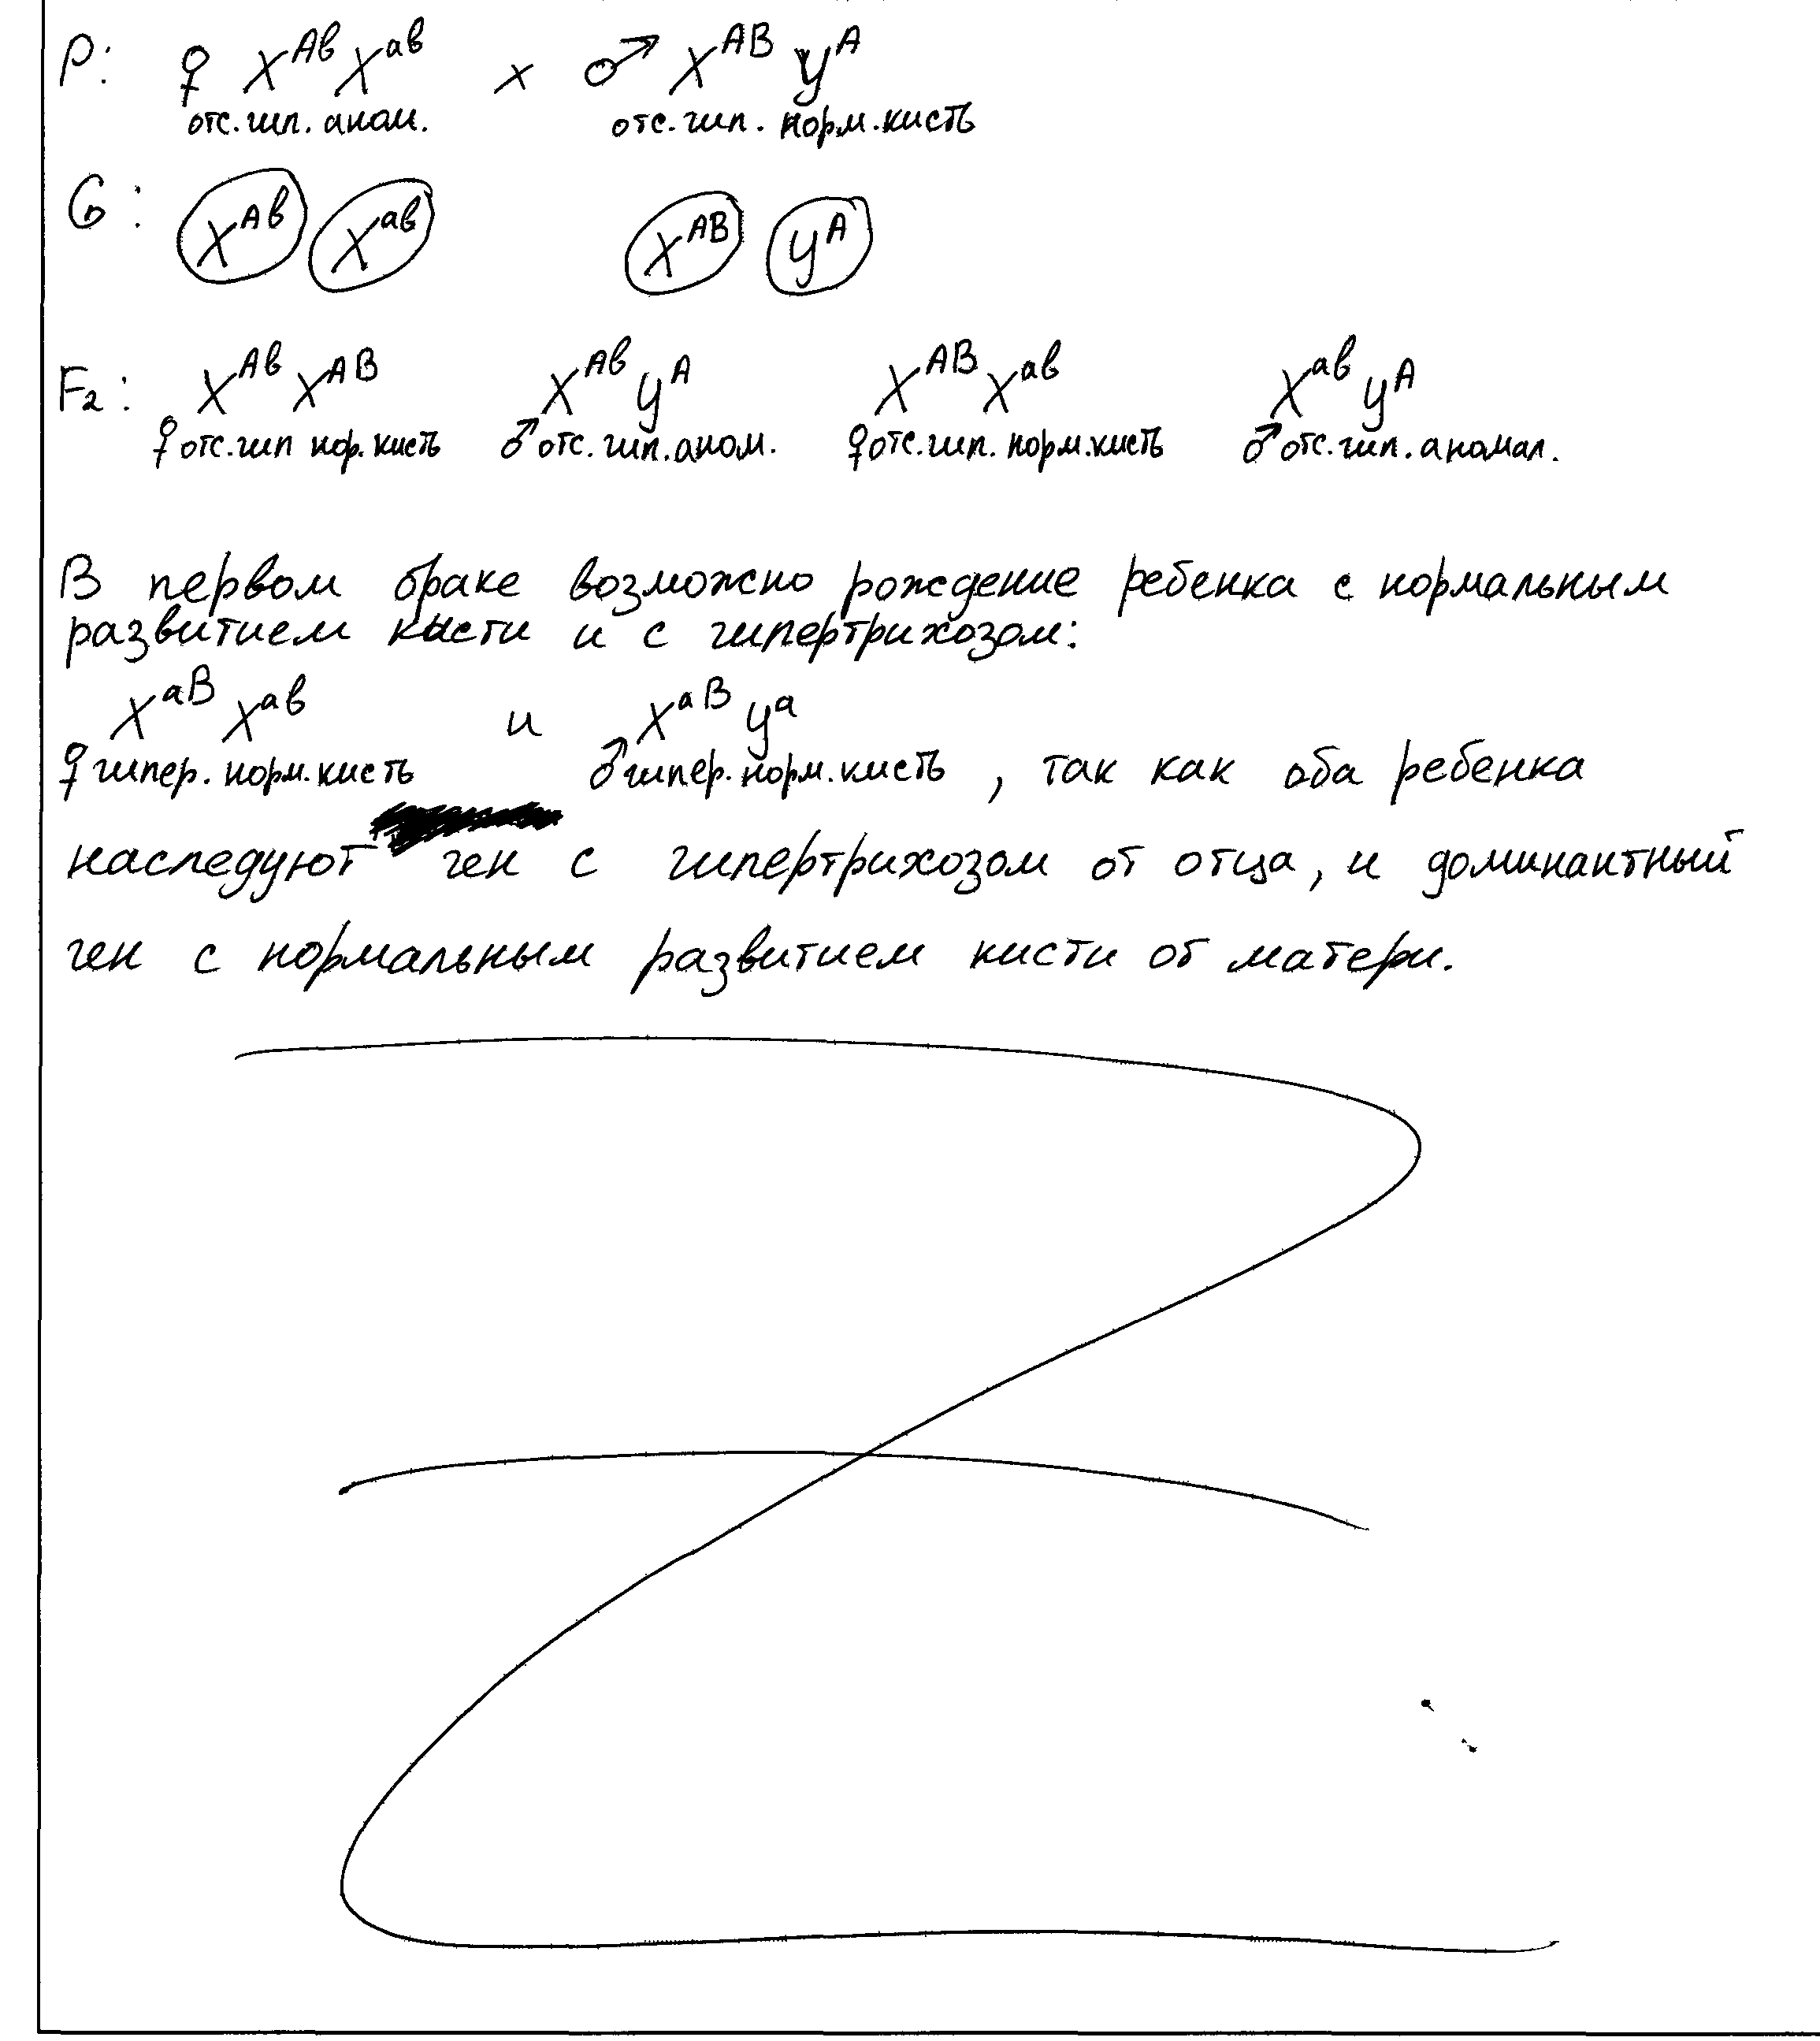 P: ♀ X^Aв X^aв × ♂ X^AB y^A
отс.гип. аном. отс.гип. норм.кисть
G: X^Aв X^aв X^AB y^A
F₂: X^Aв X^AB X^Aв y^A X^AB X^aв X^aв y^A
♀ отс.гип нор.кисть ♂ отс.гип.аном. ♀ отс.гип. норм.кисть ♂ отс.гип.аномал.
В первом браке возможно рождение ребенка с нормальным
развитием кисти и с гипертрихозом:
X^aB X^aв и X^aB y^a
♀ гипер. норм.кисть ♂ гипер.норм.кисть, так как оба ребенка
наследуют ген с гипертрихозом от отца, и доминантный
ген с нормальным развитием кисти от матери.